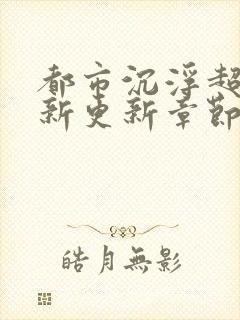 都市沉浮超
新更新章節
皓月無影